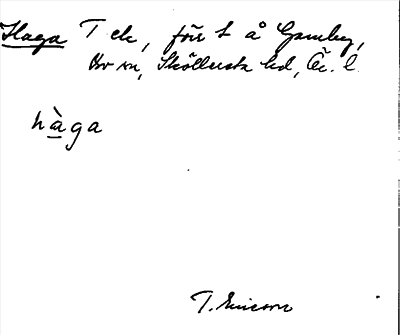 Haga T ek, förr t å Gamby,
Bo sn, Sköllersta hd, Ör. l.
hàga
T. Ericson